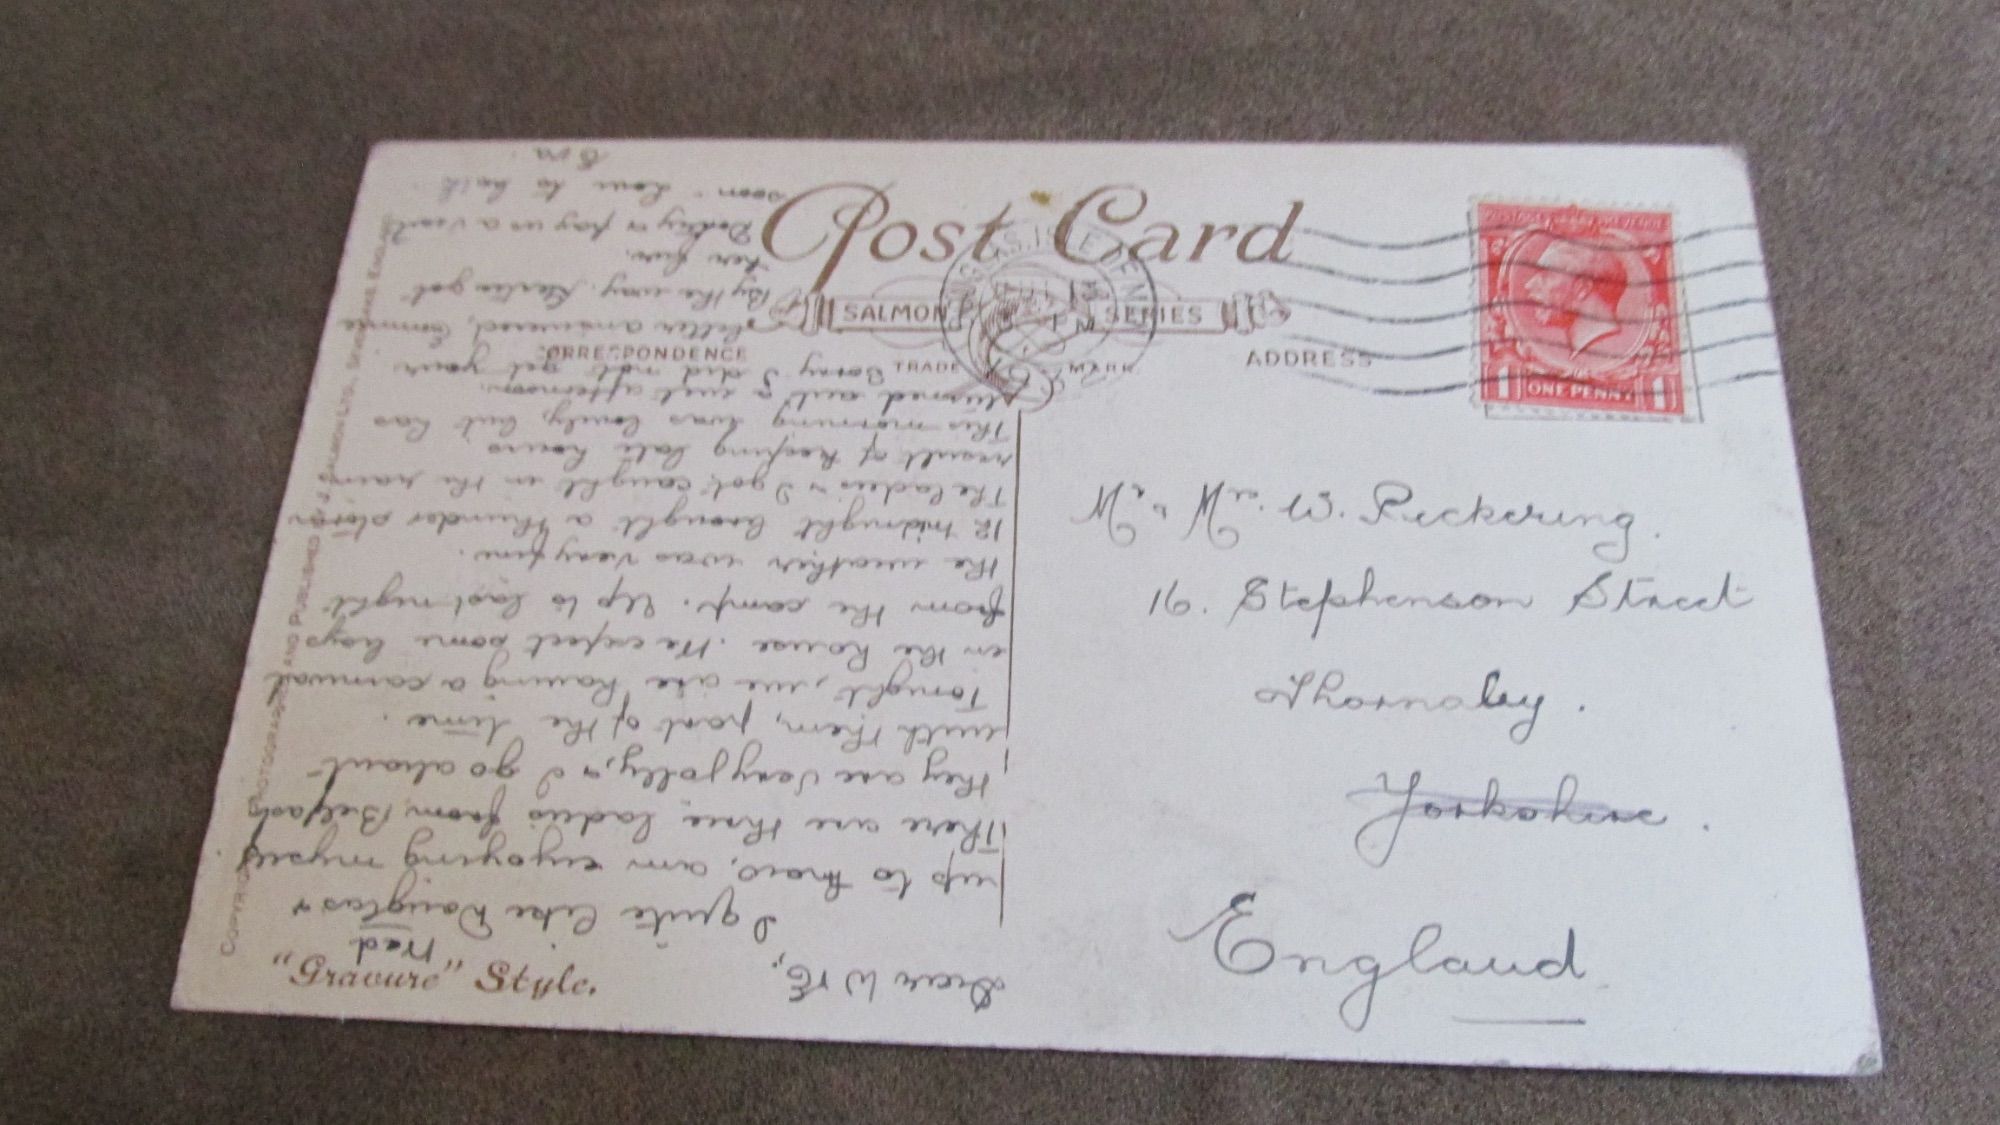 Post Card
SALMON SERIES
CORRESPONDENCE
TRADE MARK
ADDRESS
ONE PENNY
1 1
Mr & Mrs. W. Pickering.
16. Stephenson Street
Thornaby.
Yorkshire.
England
"Gravure" Style.
COPYRIGHT PHOTOGRAPHED AND PUBLISHED J. SALMON LTD., SEVENOAKS, ENGLAND
Dear W & E,
Wed
I quite like Douglas &
up to now, am enjoying myself
There are three ladies from Belfast
they are very jolly, & I go about
with them, part of the time.
Tonight, we are having a carnival
in the house. We expect some boys
from the camp. Up to last night
the weather was very fine.
12 midnight brought a thunder storm
The ladies & I got caught in the rain,
result of keeping late hours.
This morning was lovely, but has
turned out a wet afternoon.
Sorry I did not get your
letter answered,
By the way, got
her fur.
Daddy & pay us a visit
soon. Love to both
Eva